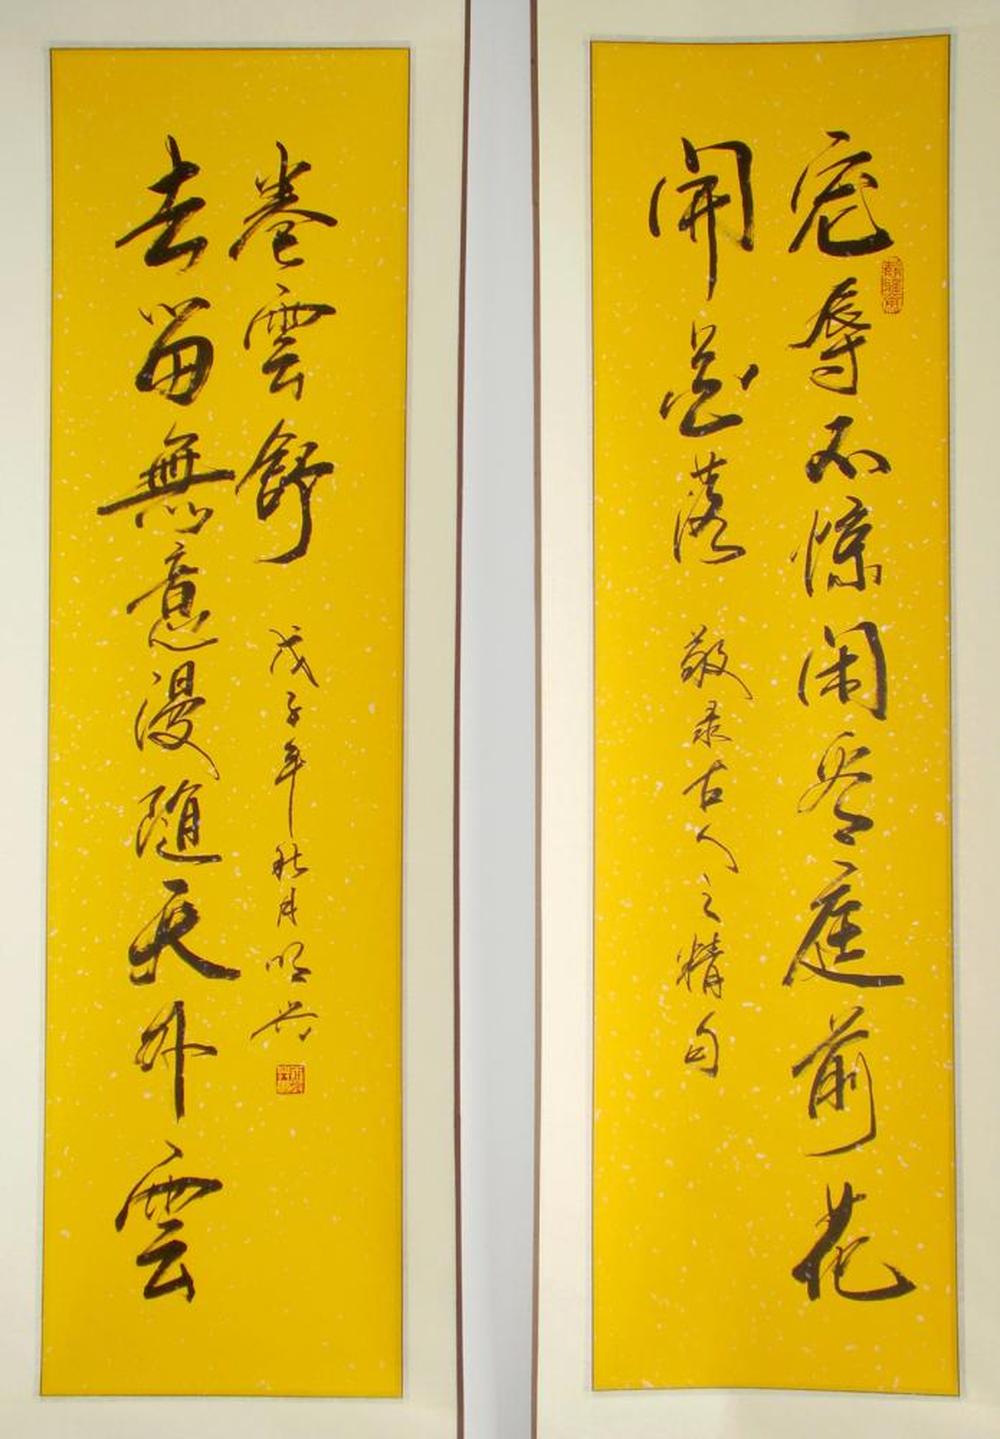 宠辱不惊闲看庭前花
開花落 敬录古人之精句
去留無意漫随天外雲
卷雲舒 戊子年秋月明兴